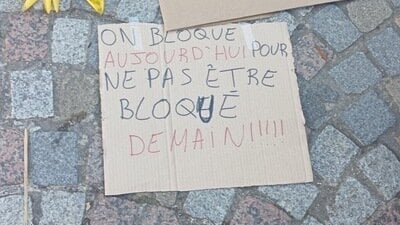 ON BLOQUE
AUJOURD'HUI POUR
NE PAS ÊTRE
BLOQUÉ
DEMAIN!!!!!